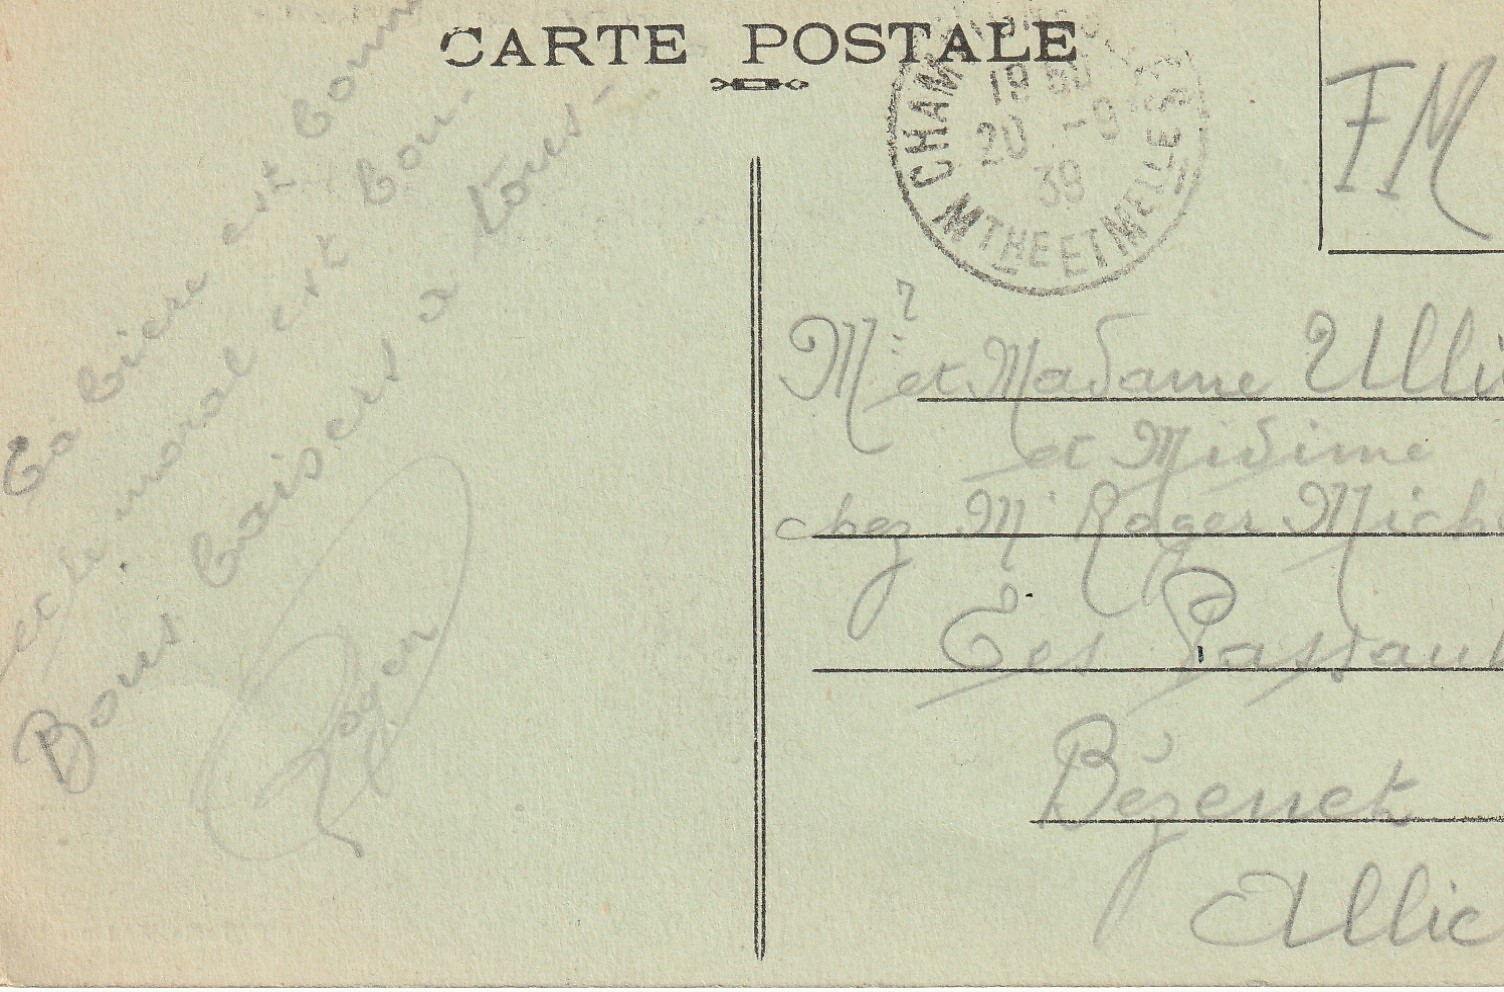 CARTE POSTALE
CHAM
18 30
20 -9
39
MTHE ET MELLE
FM
La biere est bonne
et le moral est bon.
Bons baisers a tous-
Roger
Mr et Madame Ulli
et Midime
chez Mr Roger Mich
Les Passaut
Bézenet
Allie